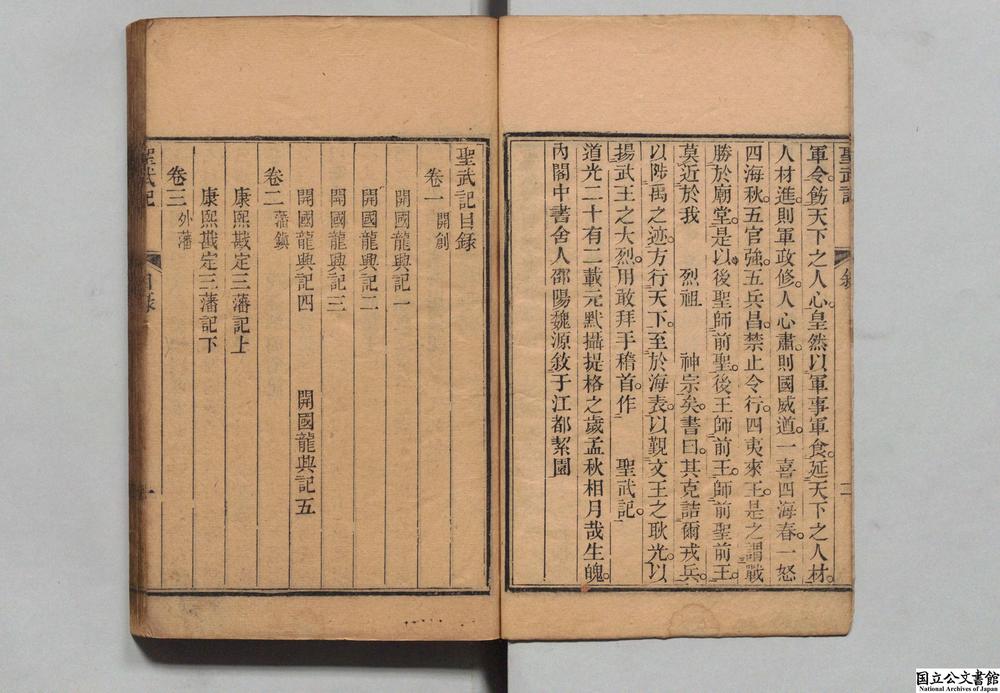 聖武記 敘 二
軍令。飭天下之人心。皇然以軍事軍食。延天下之人材。
人材進則軍政修。人心肅則國威遒。一喜四海春。一怒
四海秋。五官強。五兵昌。禁止令行。四夷來王。是之謂戰
勝於廟堂。是以後聖師前聖。後王師前王。師前聖前王。
莫近於我 烈祖 神宗矣。書曰。其克詰爾戎兵。
以陟禹之迹。方行天下。至於海表。以覲文王之耿光。以
揚武王之大烈。用敢拜手稽首。作 聖武記。
道光二十有二載元默攝提格之歲孟秋相月哉生魄。
內閣中書舍人邵陽魏源敘于江都絜園
聖武記目錄
卷一 開創
開國龍興記一
開國龍興記二
開國龍興記三
開國龍興記四 開國龍興記五
卷二 藩鎮
康熙戡定三藩記上
康熙戡定三藩記下
卷三 外藩
聖武記 目錄 一
国立公文書館
National Archives of Japan